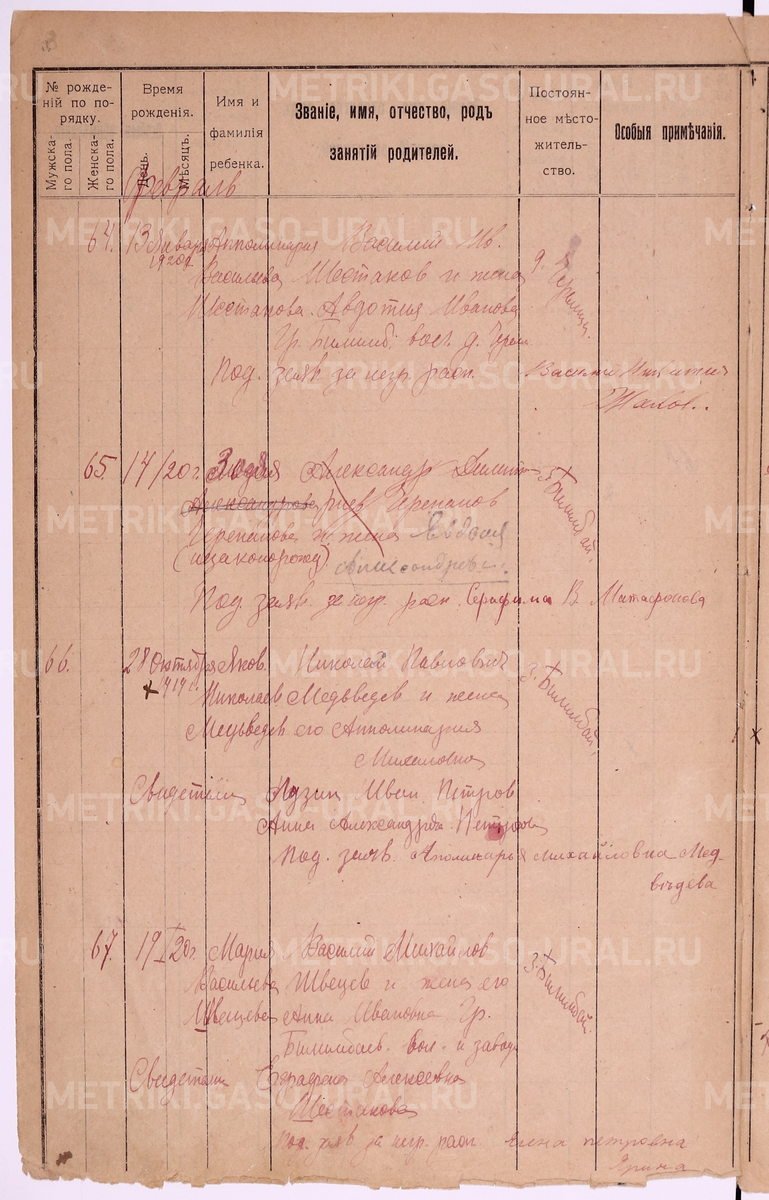 № рожде-
ній по по-
рядку.
Мужска-
го пола.
Женска-
го пола.
Время
рожденія.
День.
Мѣсяцъ.
Имя и
фамилія
ребенка.
Званіе, имя, отчество, родъ
занятій родителей.
Постоян-
ное мѣсто-
житель-
ство.
Особыя примѣчанія.
Февраль
64. 13 Января Апполинария Василий Ив.
1920 г. Васильева Шестаков и жена
Шестакова Авдотия Иванова
Гр. вол. д.
Под. заяв. за негр. расп. Василий
65. 14/20 г. Зоя Александр Димит-
Александрова риев Черепанов
Черепанова и жена Евдокия
Александров.
Под. заяв. за негр. расп. Серафима В Матафонова
Билимбай.
66. 28 Октября Яков Николай Павлович
1919 г. Николаев Медведев и жена
Медьведев его Апполинария
Михаиловна
З. Билимбай.
Свидетели Лузин Иван Петров
Анна Александра Петрова
Под. заяв. Аполинарья михайловна Мед-
вѣдева
67. 19 I 20 г. Мария Василий Михайлов
Васильева Швецов и жена его
Швецова Анна Ивановна Гр.
Билимбаев. вол. и завода
З. Билимбай
Свидетели Евграфия Алексеевна
Шестакова
Под. заяв за негр. расп. елена петровна
Ярина
METRIKI.GASO-URAL.RU